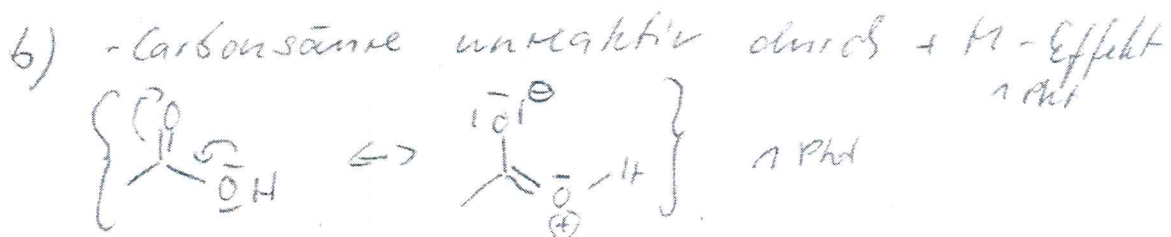 b) - Carbonsäure unreaktiv durch + M-Effekt
1 Pkt
O |O| ⊖
<-> 1 Pkt
OH O - H
⊕